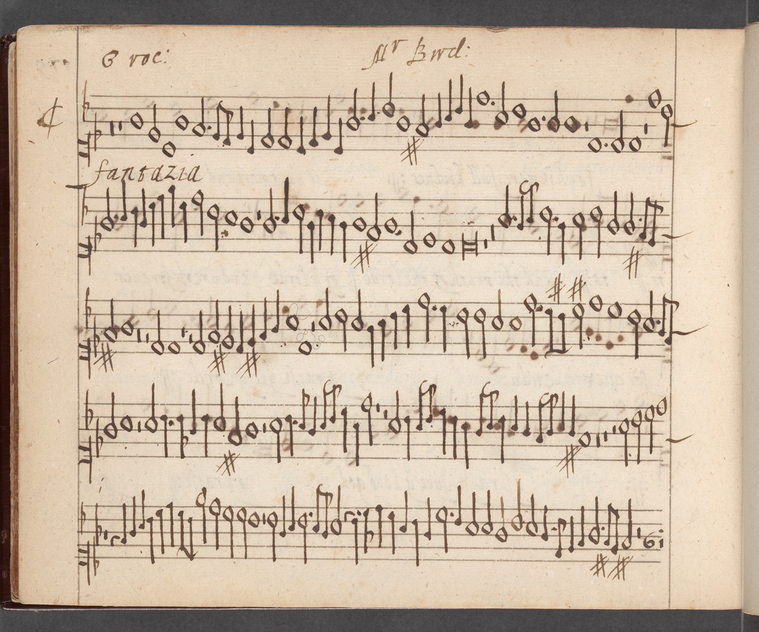 6 voc: Mr Bird:
fantazia